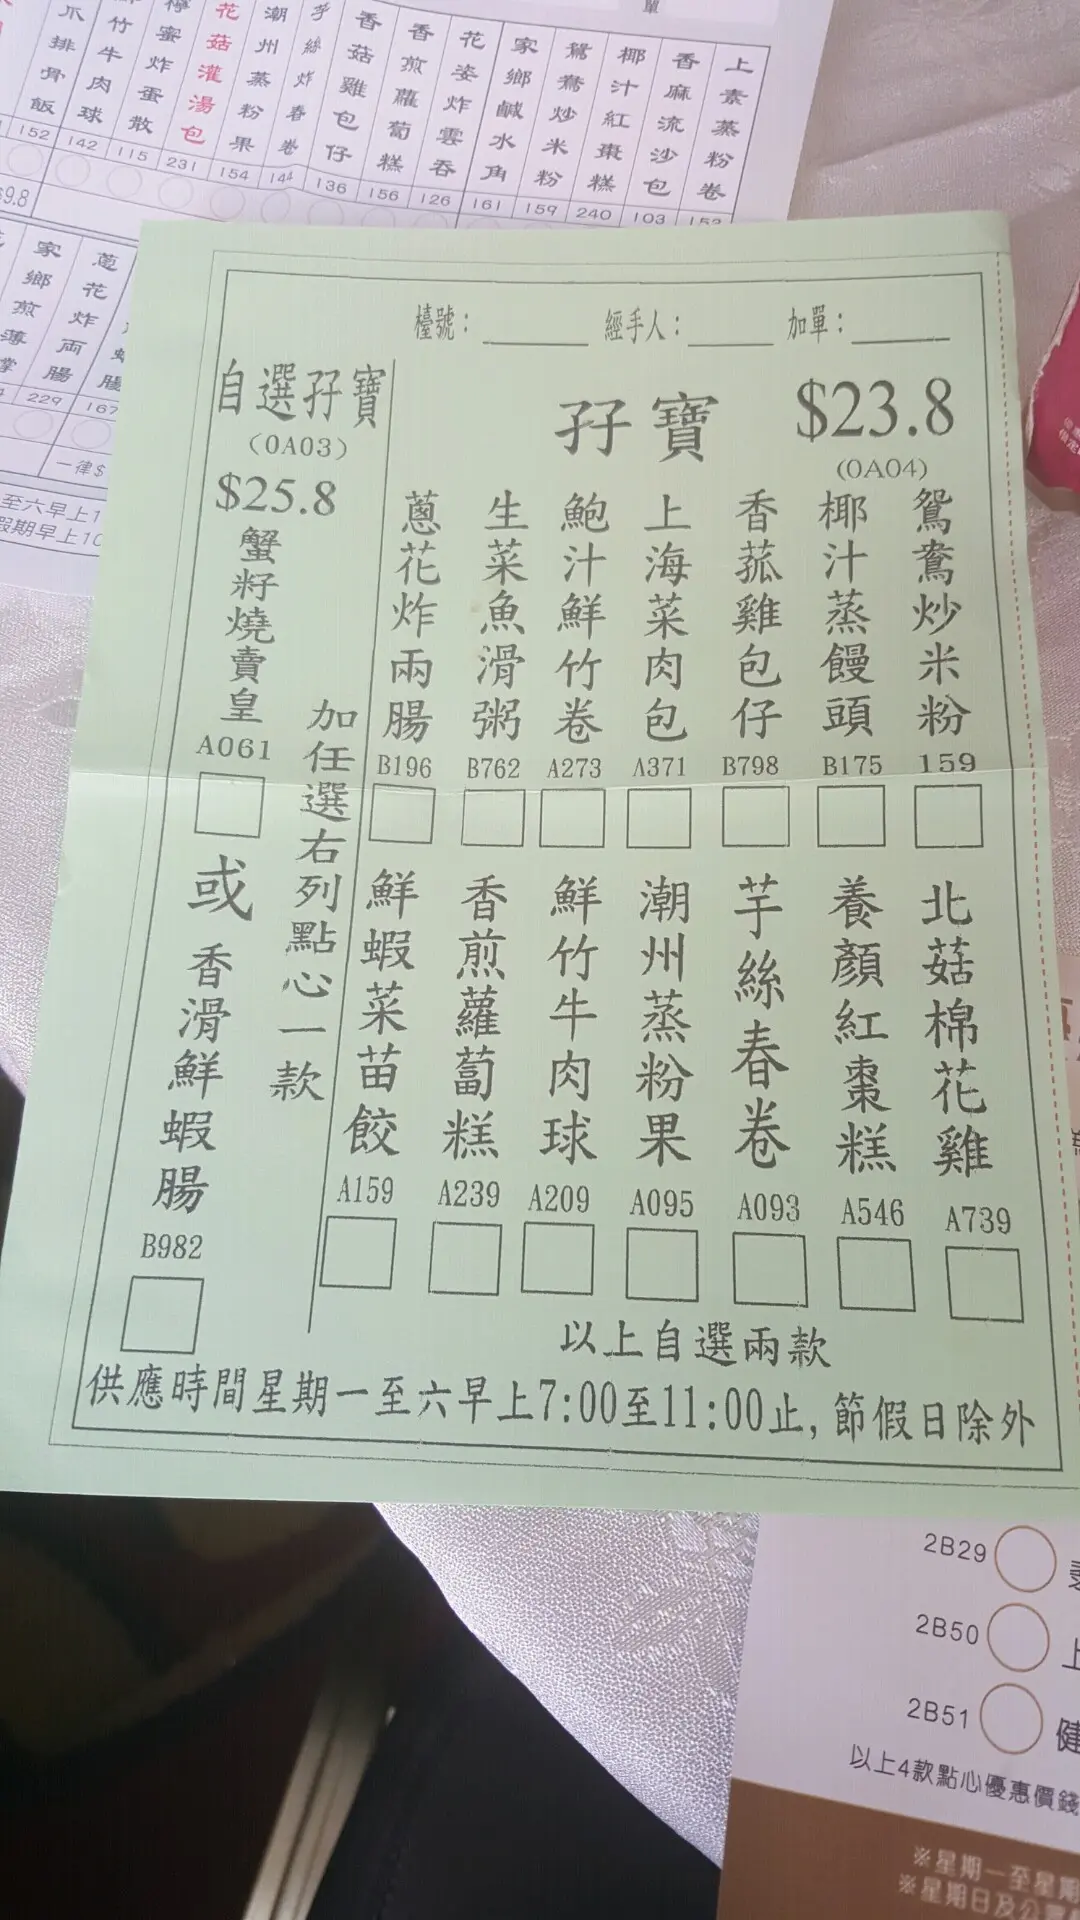 單
爪排骨飯
竹牛肉球
蜜炸蛋散
花菇灌湯包
潮州蒸粉果
芋絲炸春卷
香菇雞包仔
香煎蘿蔔糕
花姿炸雲吞
家鄉鹹水角
鴛鴦炒米粉
椰汁紅棗糕
香麻流沙包
上素蒸粉卷
152
142
115
231
154
144
136
156
126
161
159
240
103
152
$9.8
家鄉煎薄掌
蔥花炸両腸
229
167
一律$
至六早上1
假期早上10
檯號：
經手人：
加單：
自選孖寶
(0A03)
$25.8
蟹籽燒賣皇
A061
或
香滑鮮蝦腸
B982
加任選右列點心一款
孖寶
$23.8
(0A04)
蔥花炸兩腸
生菜魚滑粥
鮑汁鮮竹卷
上海菜肉包
香菰雞包仔
椰汁蒸饅頭
鴛鴦炒米粉
B196
B762
A273
A371
B798
B175
159
鮮蝦菜苗餃
香煎蘿蔔糕
鮮竹牛肉球
潮州蒸粉果
芋絲春卷
養顏紅棗糕
北菇棉花雞
A159
A239
A209
A095
A093
A546
A739
以上自選兩款
供應時間星期一至六早上7:00至11:00止,節假日除外
2B29
2B50
上
2B51
健
以上4款點心優惠價錢
※星期一至星期
※星期日及公